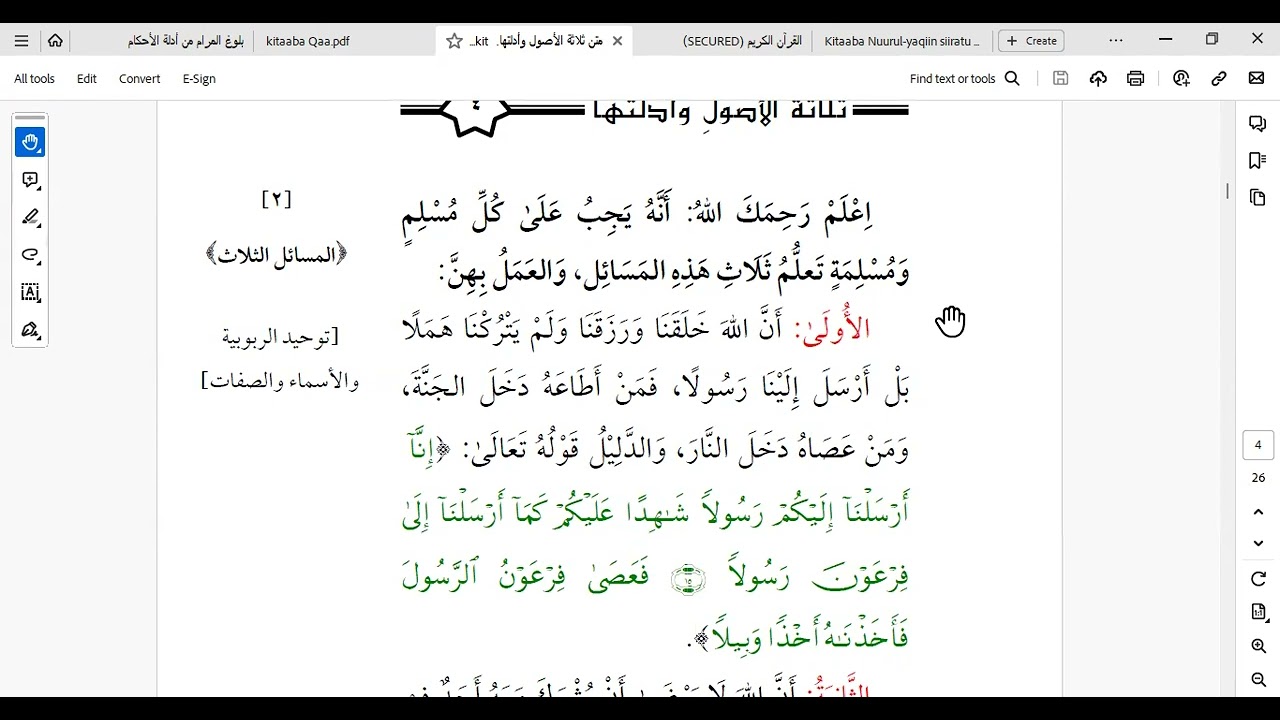 بلوغ المرام من أدلة الأحكام
kitaaba Qaa.pdf
متن ثلاثة الأصول وأدلتها. kit...
القرآن الكريم (SECURED)
Kitaaba Nuurul-yaqiin siiratu ...
Create
All tools Edit Convert E-Sign
Find text or tools
ثلاثة الأصول وأدلتها
٤
[٢]
﴿المسائل الثلاث﴾
[توحيد الربوبية
والأسماء والصفات]
اِعْلَمْ رَحِمَكَ اللهُ: أَنَّهُ يَجِبُ عَلَىٰ كُلِّ مُسْلِمٍ
وَمُسْلِمَةٍ تَعلُّمُ ثَلَاثِ هَذِهِ المَسَائِل، وَالعَمَلُ بِهِنَّ:
الأُولَىٰ: أَنَّ اللهَ خَلَقَنَا وَرَزَقَنَا وَلَمْ يَتْرُكْنَا هَمَلًا
بَلْ أَرْسَلَ إِلَيْنَا رَسُولًا، فَمَنْ أَطَاعَهُ دَخَلَ الجَنَّةَ،
وَمَنْ عَصَاهُ دَخَلَ النَّارَ، وَالدَّلِيْلُ قَوْلُهُ تَعَالَىٰ: ﴿إِنَّآ
أَرْسَلْنَآ إِلَيْكُمْ رَسُولًا شَـٰهِدًا عَلَيْكُمْ كَمَآ أَرْسَلْنَآ إِلَىٰ
فِرْعَوْنَ رَسُولًا ١٥ فَعَصَىٰ فِرْعَوْنُ ٱلرَّسُولَ
فَأَخَذْنَـٰهُ أَخْذًا وَبِيلًا﴾.
الثَّانِيَةُ: أَنَّ اللهَ لَا يَرْضَىٰ أَنْ يُشْرَكَ مَعَهُ أَحَدٌ فِي
4
26